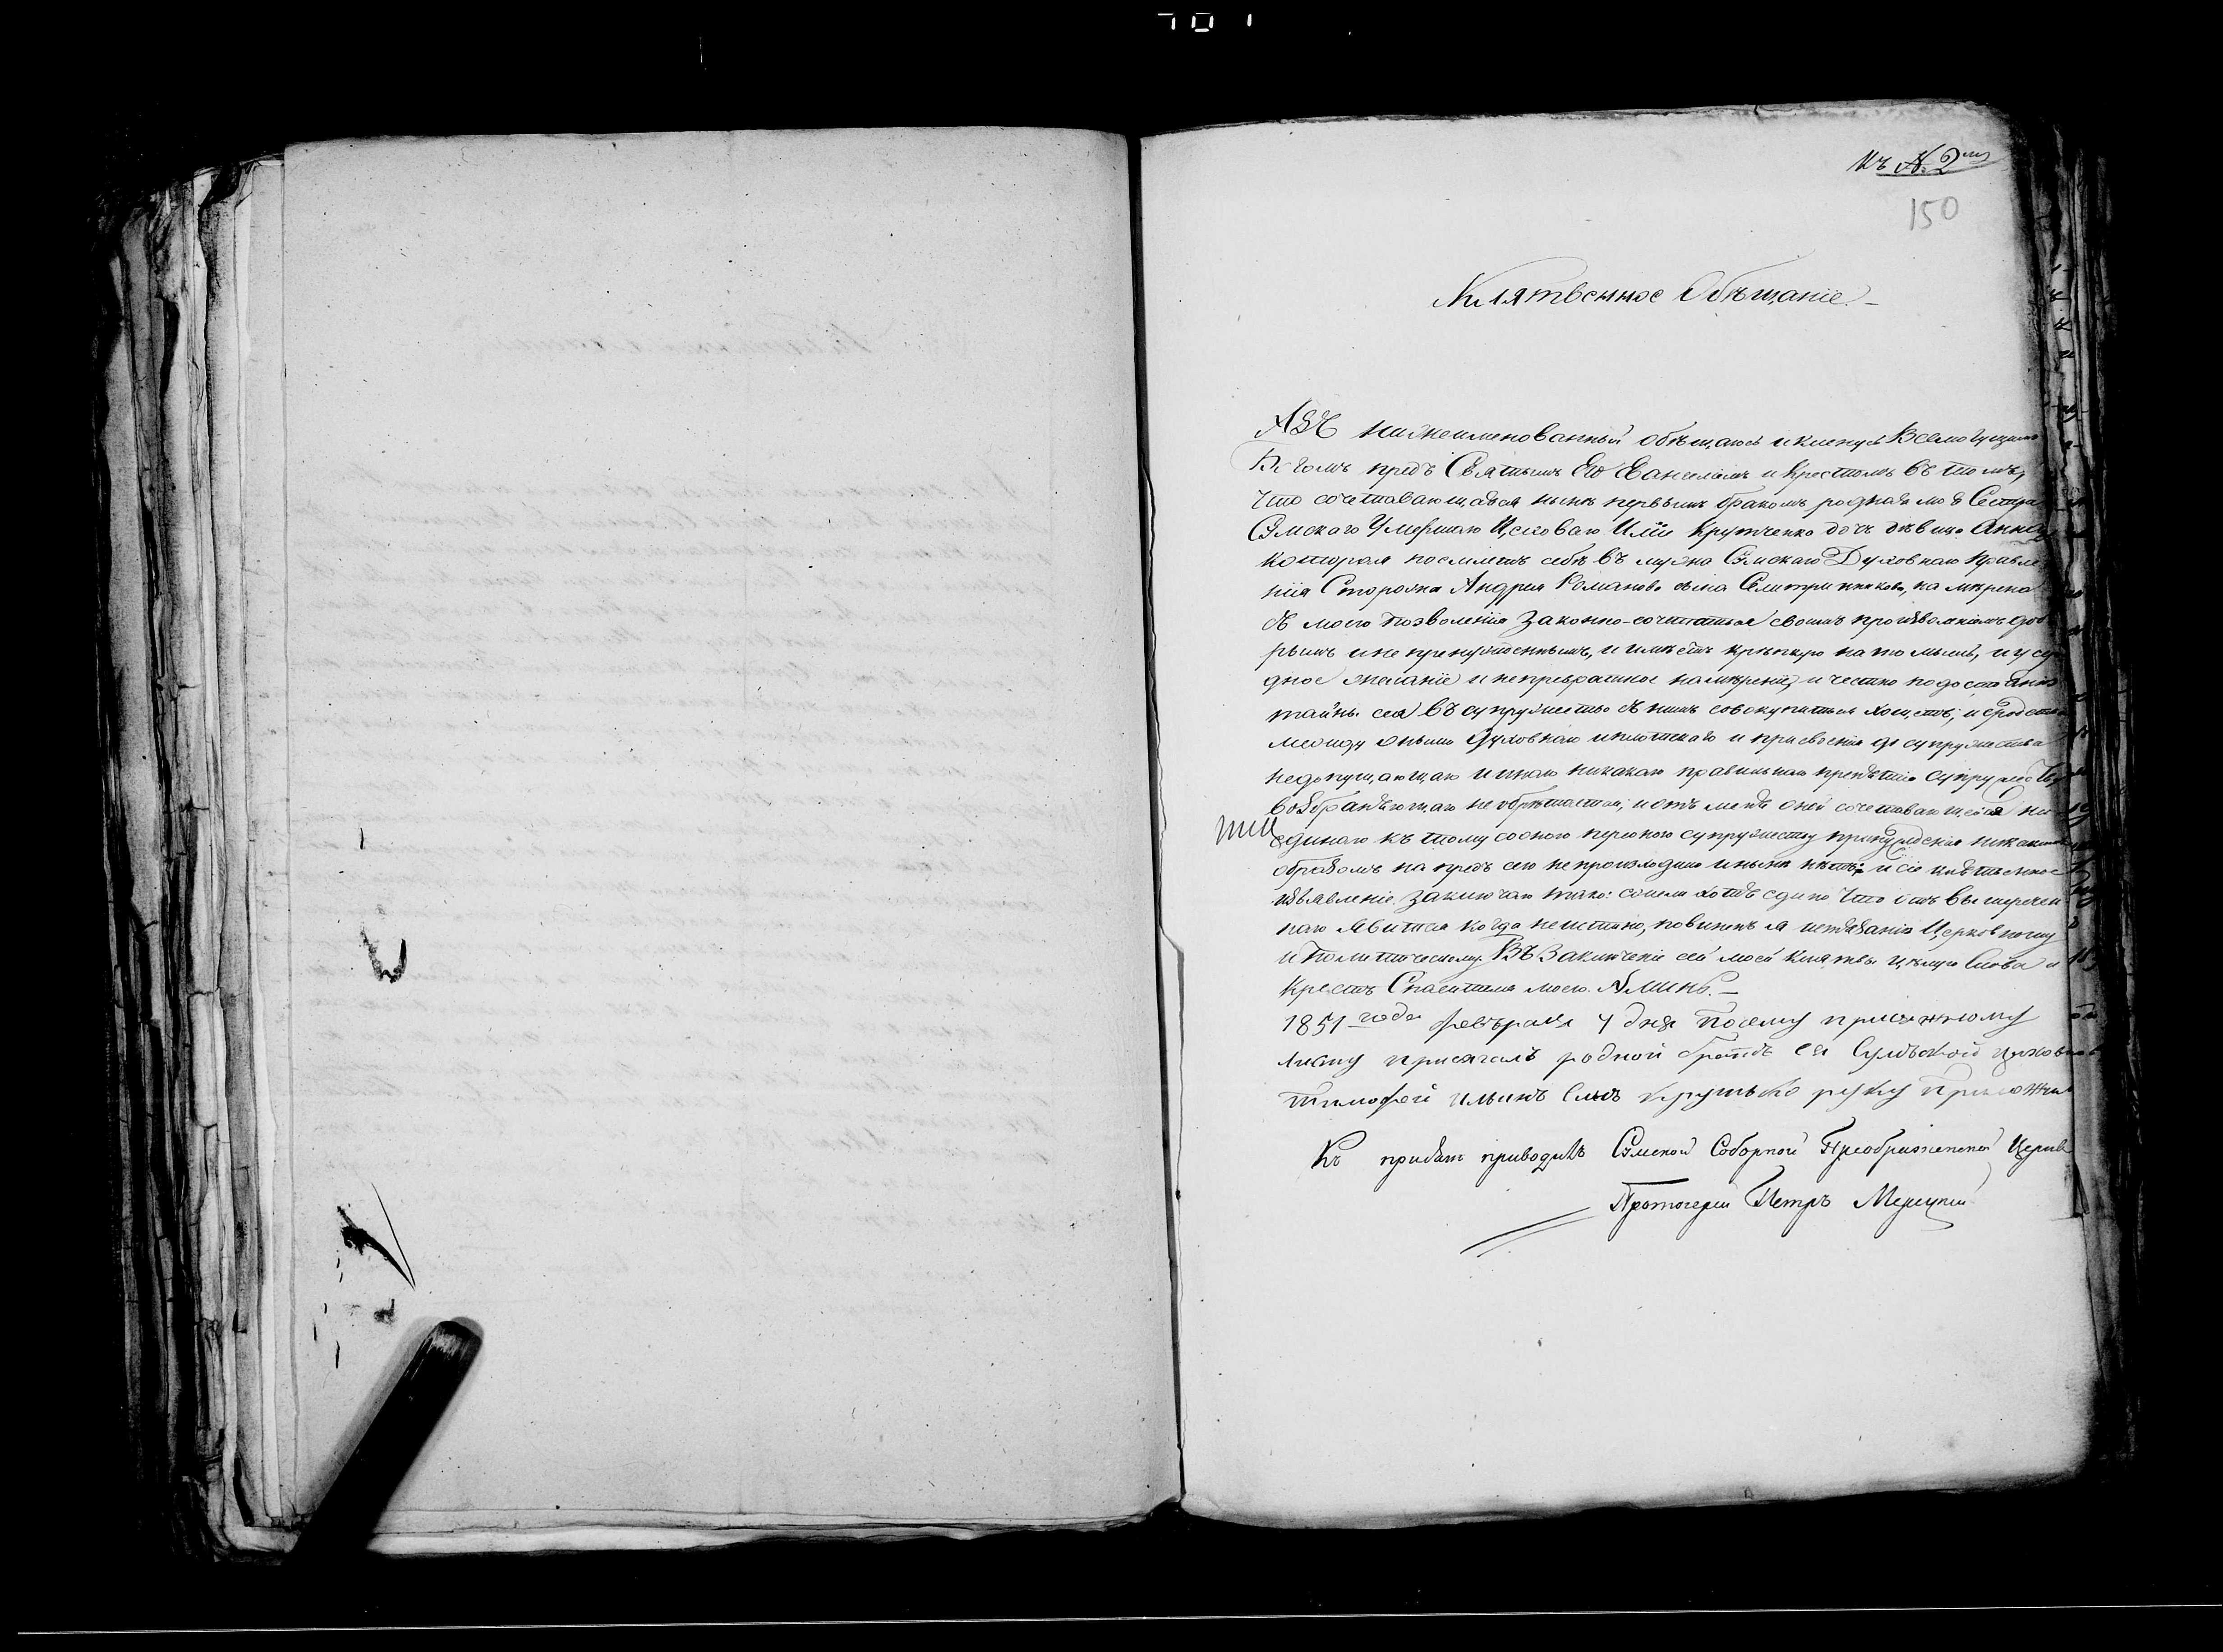 Къ № 2му
150
Клятвенное Обѣщаніе.
Азъ нижеименованный обѣщаюсь и кленусь Всемогущимъ
Богомъ предъ Святымъ Его Евангеліемъ и Крестомъ въ томъ,
что сочетавающаяся нынѣ первымъ бракомъ родная моя Сестра
Сумскаго Умершаго Цеховаго Иліи Крутченко дочь дѣвица Анна
которая посмлетъ себѣ въ мужа Сумскаго Духовнаго Правле
нія Сторожа Андрея Романова сына Селитринникова, намѣрена
съ моего позволенія Законно-сочетаться своимъ произволеніемъ доб
рымъ и не принужденнымъ, и имѣетъ крѣпкую на то мысль, и усер
дное желаніе и непревратное намѣреніе, и честно по достоянію
тайны сея въ супружество съ нимъ совокупиться хощетъ; и сродства
между оными духовнаго и плотскаго и присвоенія до супружества
недопущающаго и инаго никакаго правильнаго препятія супружеству
возбраняющаго не обрѣтается; и отъ мене оней сочетавающейся ни
единаго къ тому соонаго перонаго супружеству принужденія никакимъ
образомъ напредъ сего не происходило и нынѣ нѣтъ; и сіе клятвенное
изъявленіе заключаю тако: если хотя едино что отъ вышеречен
наго явится когда неистинно, повиненъ я истязанію Церковному
и Политическому. Въ Заключеніе сей моей клятвы цѣлую Слова и
Крестъ Спасителя моего. Аминь.
1851 года февъраля 4 дня Посему присяжному
листу присягалъ родной братъ ея Сумъской цеховой
тимофей ильинъ Сынъ крутько руку Приложилъ
Къ присягѣ приводилъ Сумской Соборной Преображенской Церкви
Протоіерей Петръ Мерецкій